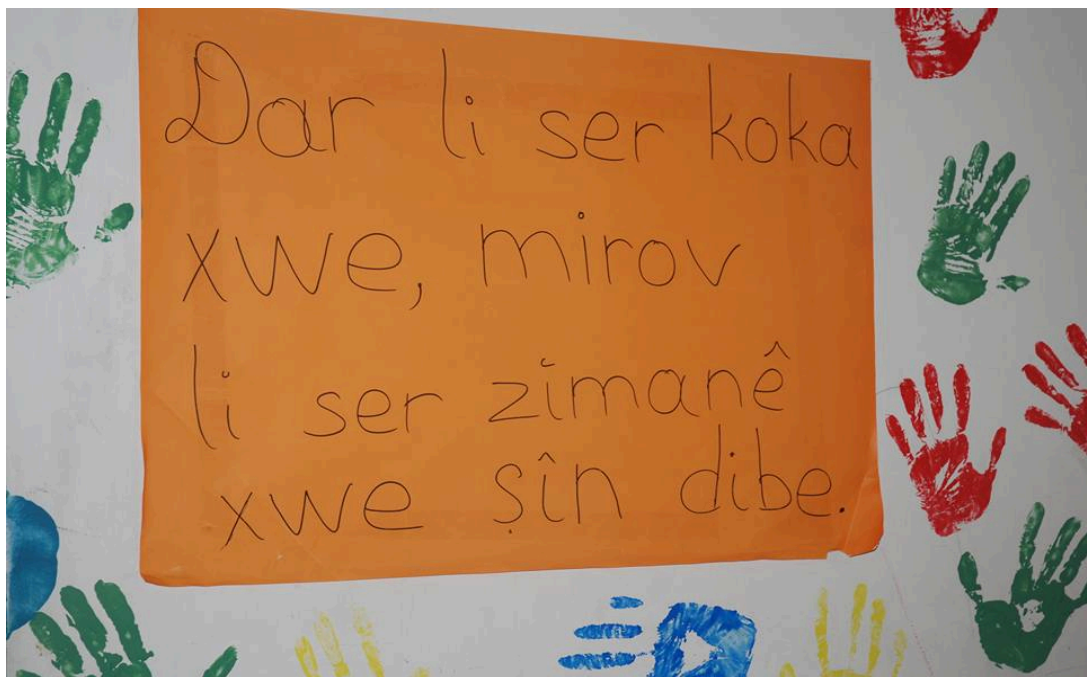 Dar li ser koka
xwe, mirov
li ser zimanê
xwe şîn dibe.